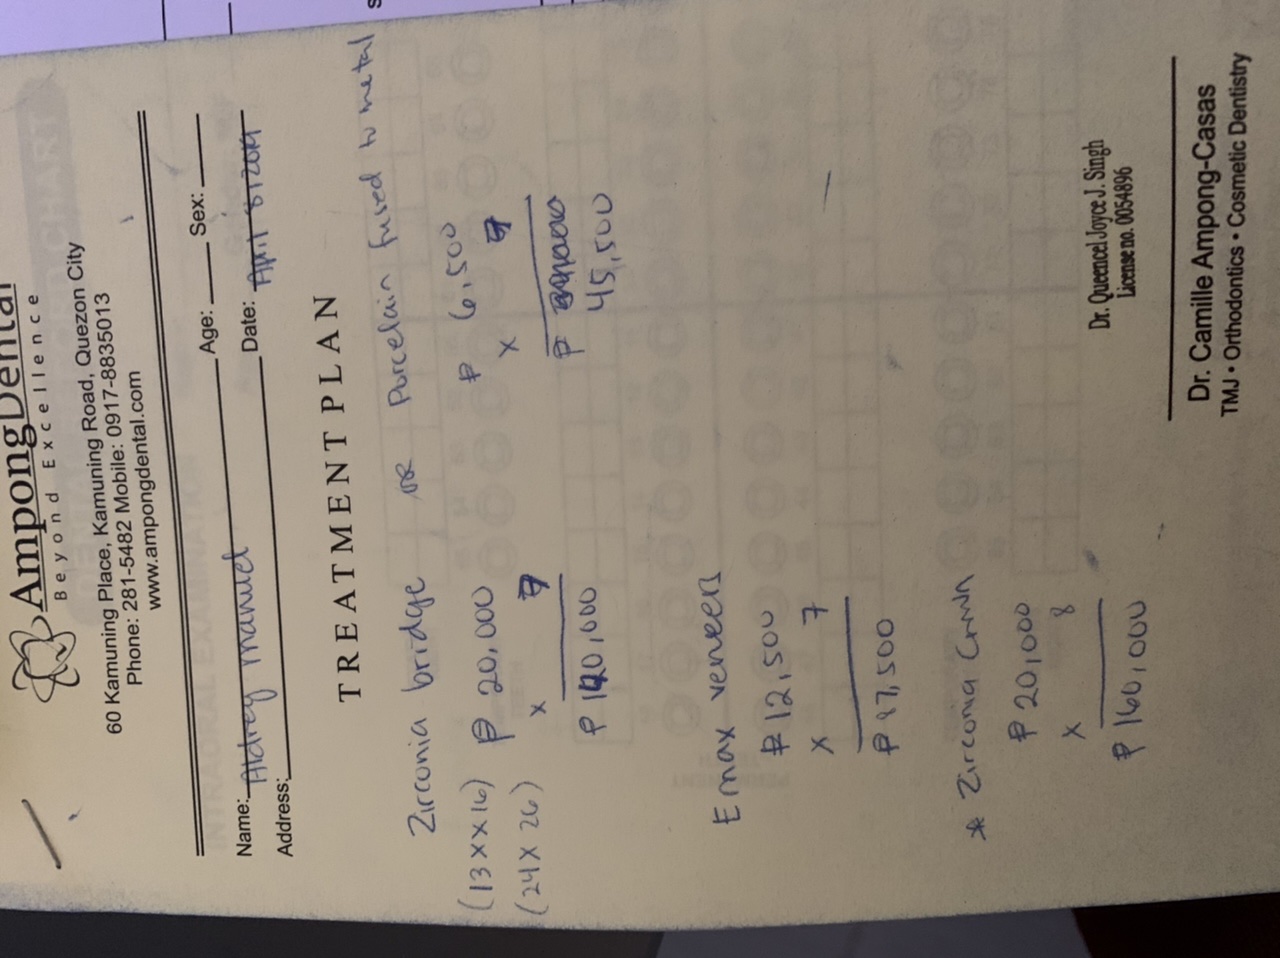 AmpongDental
Beyond Excellence
60 Kamuning Place, Kamuning Road, Quezon City
Phone: 281-5482 Mobile: 0917-8835013
www.ampongdental.com
Name: Aldrey Manuel Age: Sex:
Address: Date: April 5, 2019
TREATMENT PLAN
Zirconia bridge or Porcelain fused to metal
(13 x x 16) ₱ 20,000 ₱ 6,500
(24 x 26) x 7 x 7
₱ 140,000 ₱
45,500
Emax veneers
₱ 12,500
x 7
₱ 97,500
* Zirconia Crown
₱ 20,000
x 8
₱ 160,000
Dr. Queencel Joyce J. Singh
License no. 0054896
Dr. Camille Ampong-Casas
TMJ • Orthodontics • Cosmetic Dentistry